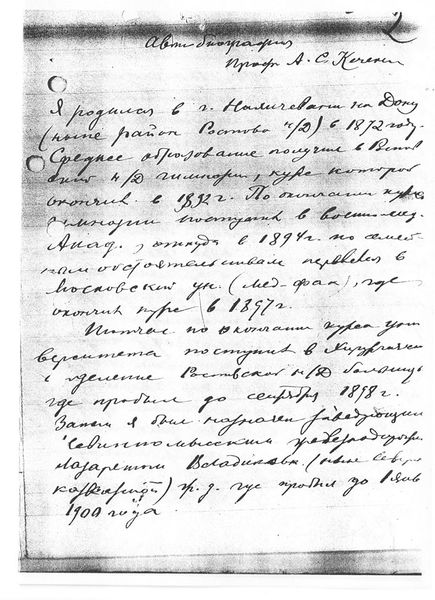 2
Автобиография
Проф. А. С.
Я родился в г. Нахичевани на Дону
(ныне район Ростова н/Д) в 1872 году.
Среднее образование получил в Ростов
ской н/Д гимназии, курс которой
окончил в 1892 г. По окончании курса
гимназии поступил в военно-мед.
Акад., откуда в 1894 г. по семей-
ным обстоятельствам перевелся в
Московский ун. (мед-фак), где
окончил курс в 1897 г.
по окончании курса уни
верситета поступил в Хирургическ
отделение Ростовской н/Д больницы
где пробыл до сентября 1898 г.
Затем я был назначен заведующим
лазаретом Владикавк. (ныне Северо
кавказской) ж. д. где пробыл до 1 янв
1900 года.